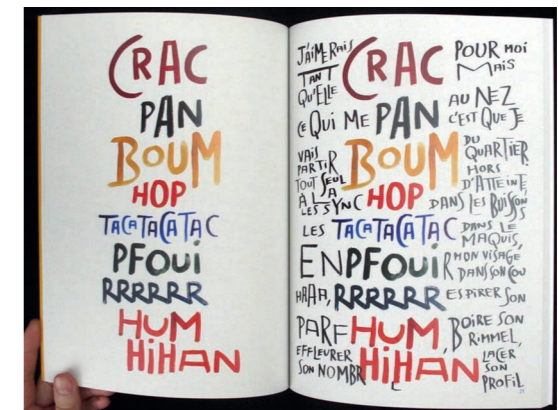 CRAC
PAN
BOUM
HOP
TACATACATAC
PFOUI
RRRRRR
HUM
HIHAN
J'AIMERAIS
TANT
QU'ELLE
CRAC
POUR MOI
MAIS
CE QUI ME PAN
AU NEZ
C'EST QUE JE
VAIS
PARTIR
TOUT SEUL
BOUM
DU
QUARTIER
HORS
D'ATTEINTE,
À LA
HOP DANS LES BUISSONS
LES TACATACATAC
DANS LE
MAQUIS,
ENPFOUIR
MON VISAGE
DANS SON COU
RRRRRR ESPIRER SON
PARFHUM,
BOIRE SON
RIMMEL,
EFFLEURER
SON NOMBRHIHAN
LACER
SON
PROFIL